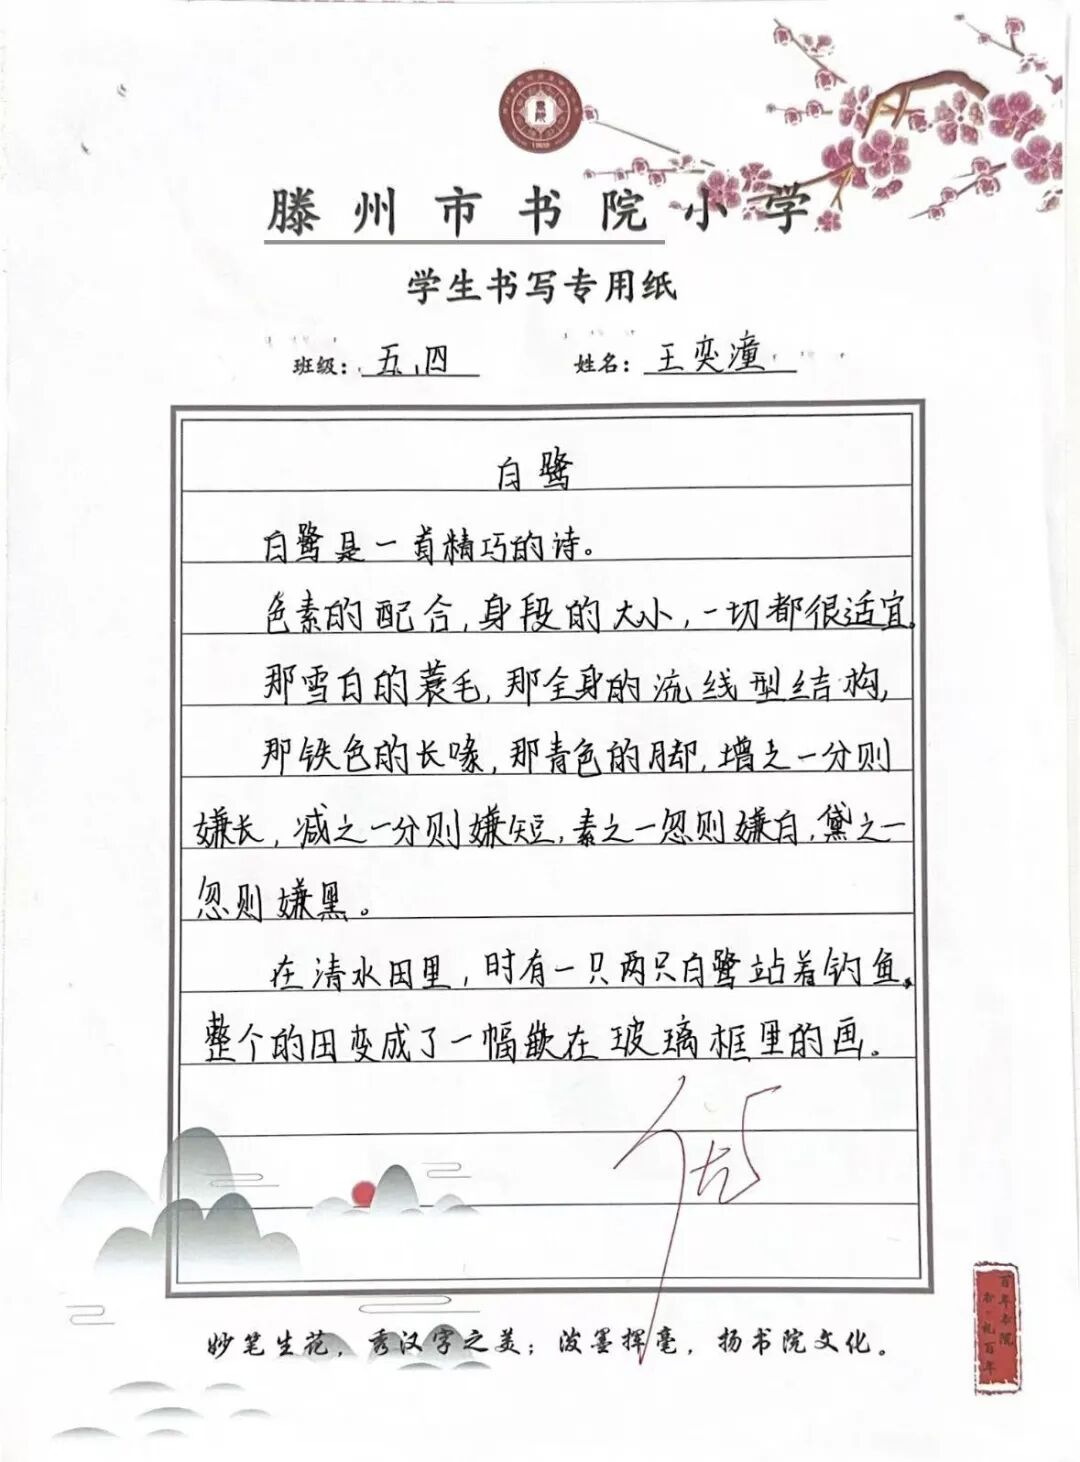 滕州市书院小学
学生书写专用纸
班级：五.四 姓名：王奕潼
白鹭
白鹭是一首精巧的诗。
色素的配合，身段的大小，一切都很适宜。
那雪白的蓑毛，那全身的流线型结构，
那铁色的长喙，那青色的脚，增之一分则
嫌长，减之一分则嫌短，素之一忽则嫌白，黛之一
忽则嫌黑。
在清水田里，时有一只两只白鹭站着钓鱼，
整个的田变成了一幅嵌在玻璃框里的画。
妙笔生花，秀汉字之美；泼墨挥毫，扬书院文化。
百年书院
书·礼百年